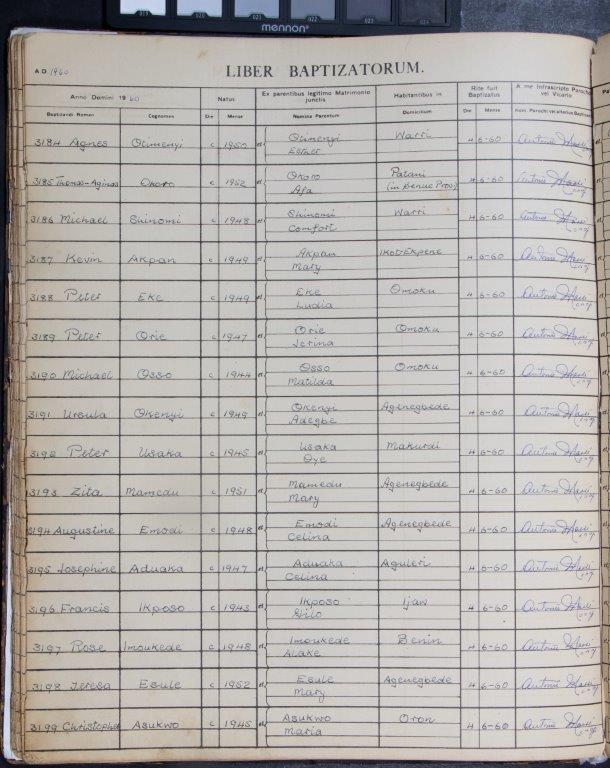 019 020 021 022 023 024
mennon
A D 1960
LIBER BAPTIZATORUM.
Anno Domini 1960 Natus Ex parentibus legitimo Matrimonio junctis Habitantibus in Rite fuit Baptizatus A me Infrascripto Parocho vel Vicario Pa
Baptizandi Nomen Cognomen Die Mense Nomina Parentum Domicilium Die Mense Nom. Parochi vel alterius Baptizantis
3184 Agnes Olimenyi c 1950 et Olimenyi Warri 4 6-60 Antonio
Esther
3185 Thomas-Aginas Okoro c 1952 et Okoro Patani 4 6-60 Antonio
Afa (in Benue Prov)
3186 Michael Shinomi c 1948 et Shinomi Warri 4 6-60 Antonio
Comfort
3187 Kevin Akpan c 1949 et Akpan Ikot-Ekpene 4 6-60 Antonio
Mary
3188 Peter Eke c 1949 et Eke Omoku 4 6-60 Antonio
Ludia
3189 Peter Orie c 1947 et Orie Omoku 4 6-60 Antonio
Jerina
3190 Michael Osso c 1944 et Osso Omoku 4 6-60 Antonio
Matilda
3191 Ursula Okenyi c 1949 et Okenyi Agenegbede 4 6-60 Antonio
Adegbe
3192 Peter Usaka c 1945 et Usaka Makurdi 4 6-60 Antonio
Oye
3193 Zita Mamedu c 1951 et Mamedu Agenegbede 4 6-60 Antonio
Mary
3194 Augustine Emodi c 1948 et Emodi Agenegbede 4 6-60 Antonio
Celina
3195 Josephine Aduaka c 1947 et Aduaka Aguleri 4 6-60 Antonio
Celina
3196 Francis Ikposo c 1943 et Ikposo Ijaw 4 6-60 Antonio
3197 Rose Imoukede c 1948 et Imoukede Benin 4 6-60 Antonio
Alake
3198 Teresa Esule c 1952 et Esule Agenegbede 4 6-60 Antonio
Mary
3199 Christopher Asukwo c 1945 et Asukwo Oron 4 6-60 Antonio
Maria